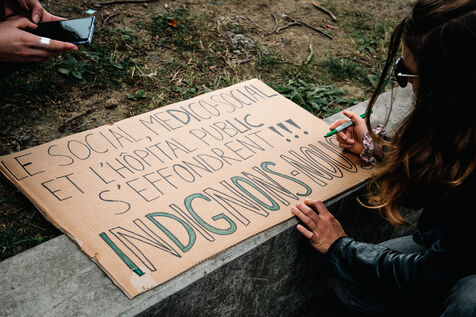 LE SOCIAL MEDICOSOCIAL
ET L'HÔPITAL PUBLIC
S'EFFONDRENT !!!
INDIGNONS-NOUS